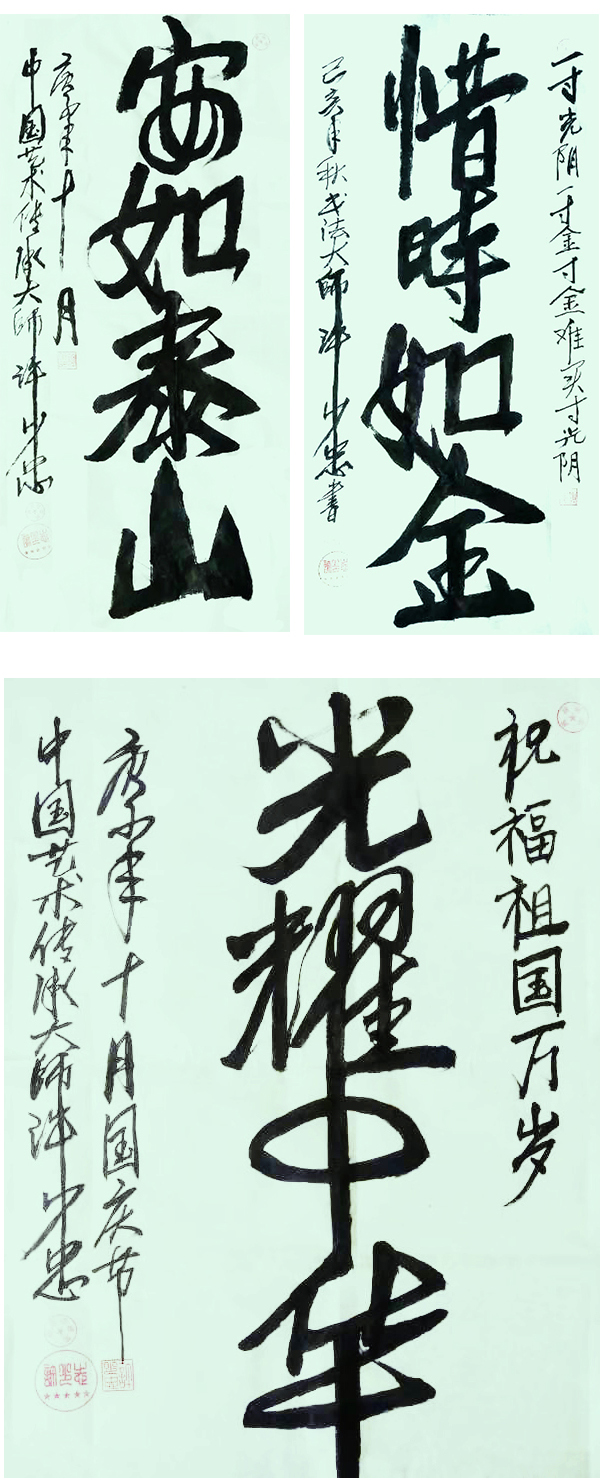 安如泰山
庚子年十月
中国艺术传承大師许少忠
一寸光阴一寸金寸金难买寸光阴
惜時如金
己亥年秋书法大師许少忠書
祝福祖国万岁
光耀中华
庚子年十月国庆节
中国艺术传承大師许少忠